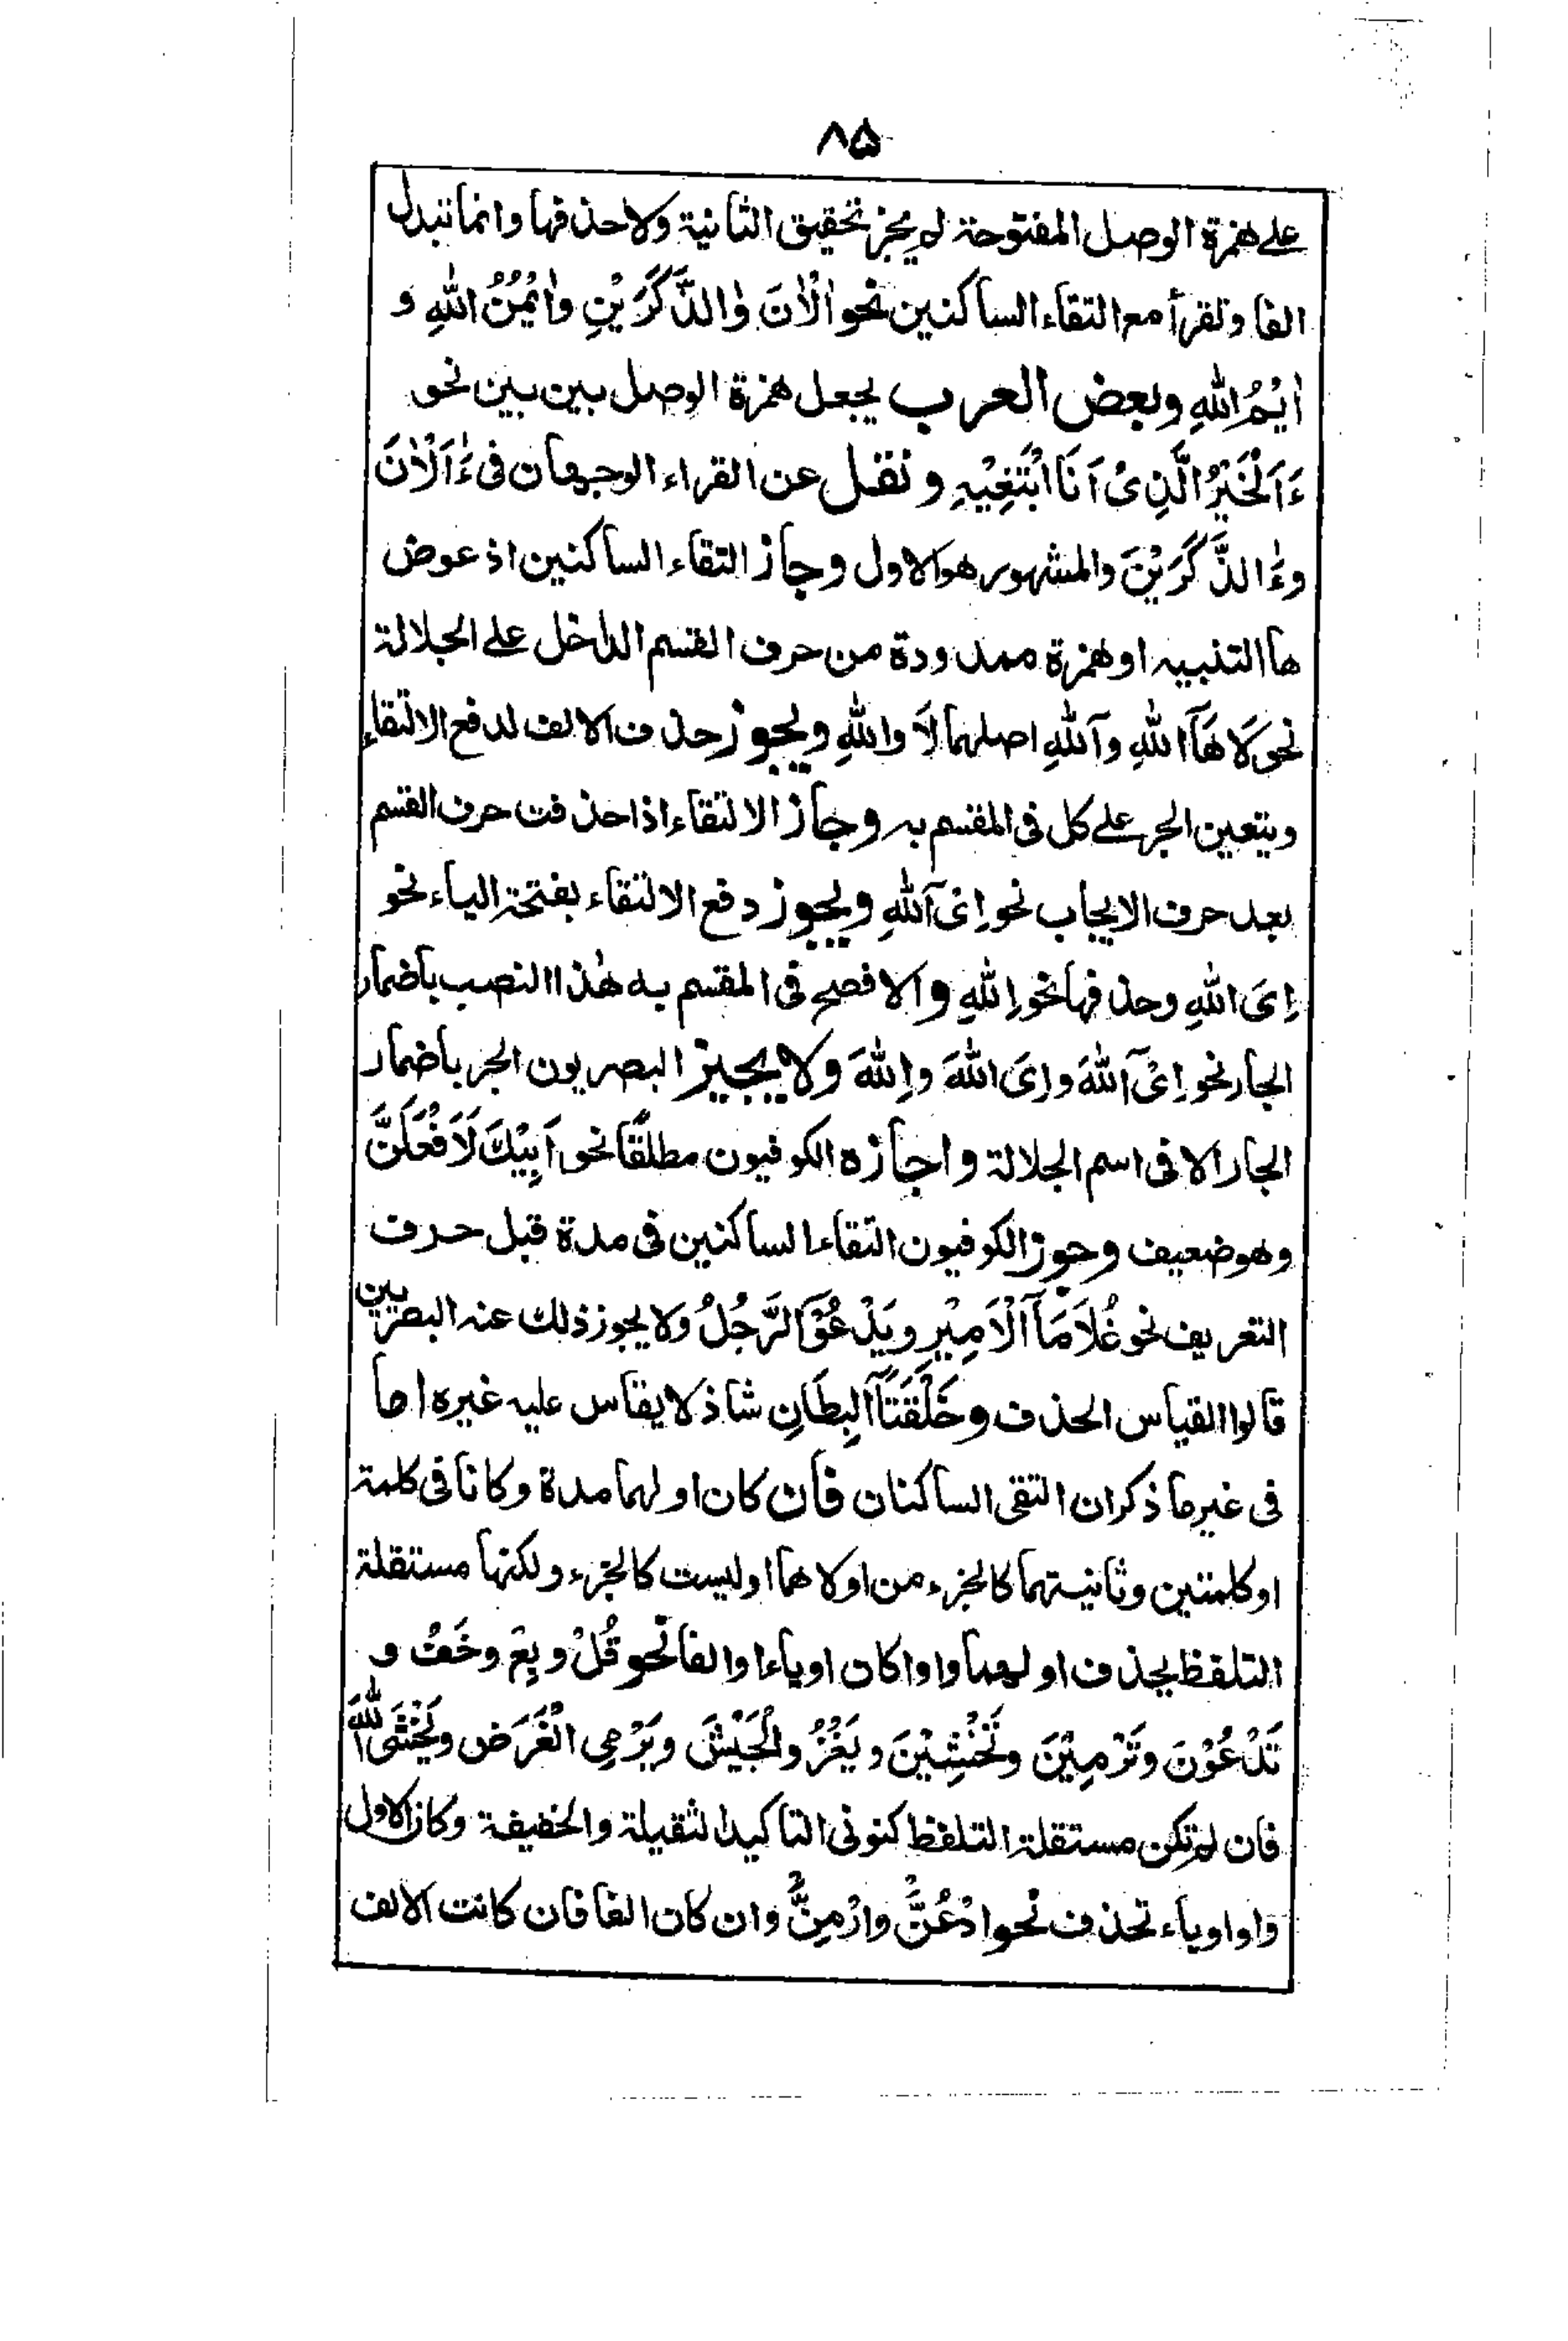 ٨۵
على همزة الوصل المفتوحة لم يجز تحقيق الثانية ولا حذفها وانما تبدل
الفا وتقرأ مع التقاء الساكنين نحو اٰلْاٰنَ وٰالذَّكَرَيْنِ وٰايْمُنُ اللّٰهِ و
اٰيْمُ اللّٰهِ وبعض العرب يجعل همزة الوصل بين بين نحو
ءَاَلْخَيْرُ الَّذِىْ اَنَا ابْتَغِيْهِ ونقل عن القراء الوجهان فى ءٰاَلْاٰنَ
وءٰالذَّكَرَيْنَ والمشهور هو الاول وجاز التقاء الساكنين اذ عوض
ها التنبيه او همزة ممدودة من حرف القسم الداخل على الجلالة
نحو لَا هَآ اللّٰهِ وآللّٰهِ اصلهما لَا واللّٰهِ ويجوز حذف الالف لدفع الالتقاء
ويتعين الجر على كل فى المقسم به وجاز الالتقاء اذا حذفت حرف القسم
بعد حرف الايجاب نحو اِىْ آللّٰهِ ويجوز دفع الالتقاء بفتحة الياء نحو
اِىَ اللّٰهِ وحذفها نحو اِللّٰهِ والافصح فى المقسم به هٰذا النصب باضمار
الجار نحو اِىْ آللّٰهَ واِىَ اللّٰهَ واِللّٰهَ ولا يجيز البصريون الجر باضمار
الجار الا فى اسم الجلالة واجازه الكوفيون مطلقًا نحو اَبِيْكَ لَاَفْعَلَنَّ
وهو ضعيف وجوز الكوفيون التقاء الساكنين فى مدة قبل حرف
التعريف نحو غُلَامَآ اَلْاَمِيْرِ ويَدْعُوْٓ الرَّجُلُ ولا يجوز ذلك عنه البصريين
قالوا القياس الحذف وخَلْقَتَآ الْبِطَانِ شاذ لا يقاس عليه غيره اما
فى غير ما ذكر ان التقى الساكنان فان كان اولهما مدة وكانا فى كلمة
او كلمتين وثانيتهما كالجزء من اولاهما او ليست كالجزء ولكنها مستقلة
التلفظ يحذف اولهما واوا كان او ياءا والفا نحو قُلْ وبِعْ وخَفْ و
تَدْعُوْنَ وتَرْمِيْنَ وتَخْشِيْنَ ويَغْزُ والْجَيْشَ ويَرْمِى الْغَرَضَ ويَخْشَى اللّٰهَ
فان لم تكن مستقلة التلفظ كنونى التاكيد الثقيلة والخفيفة وكان الاول
واوا وياء تحذف نحو ادْعُنَّ وارْمِنَّ وان كان الفا فان كانت الالف